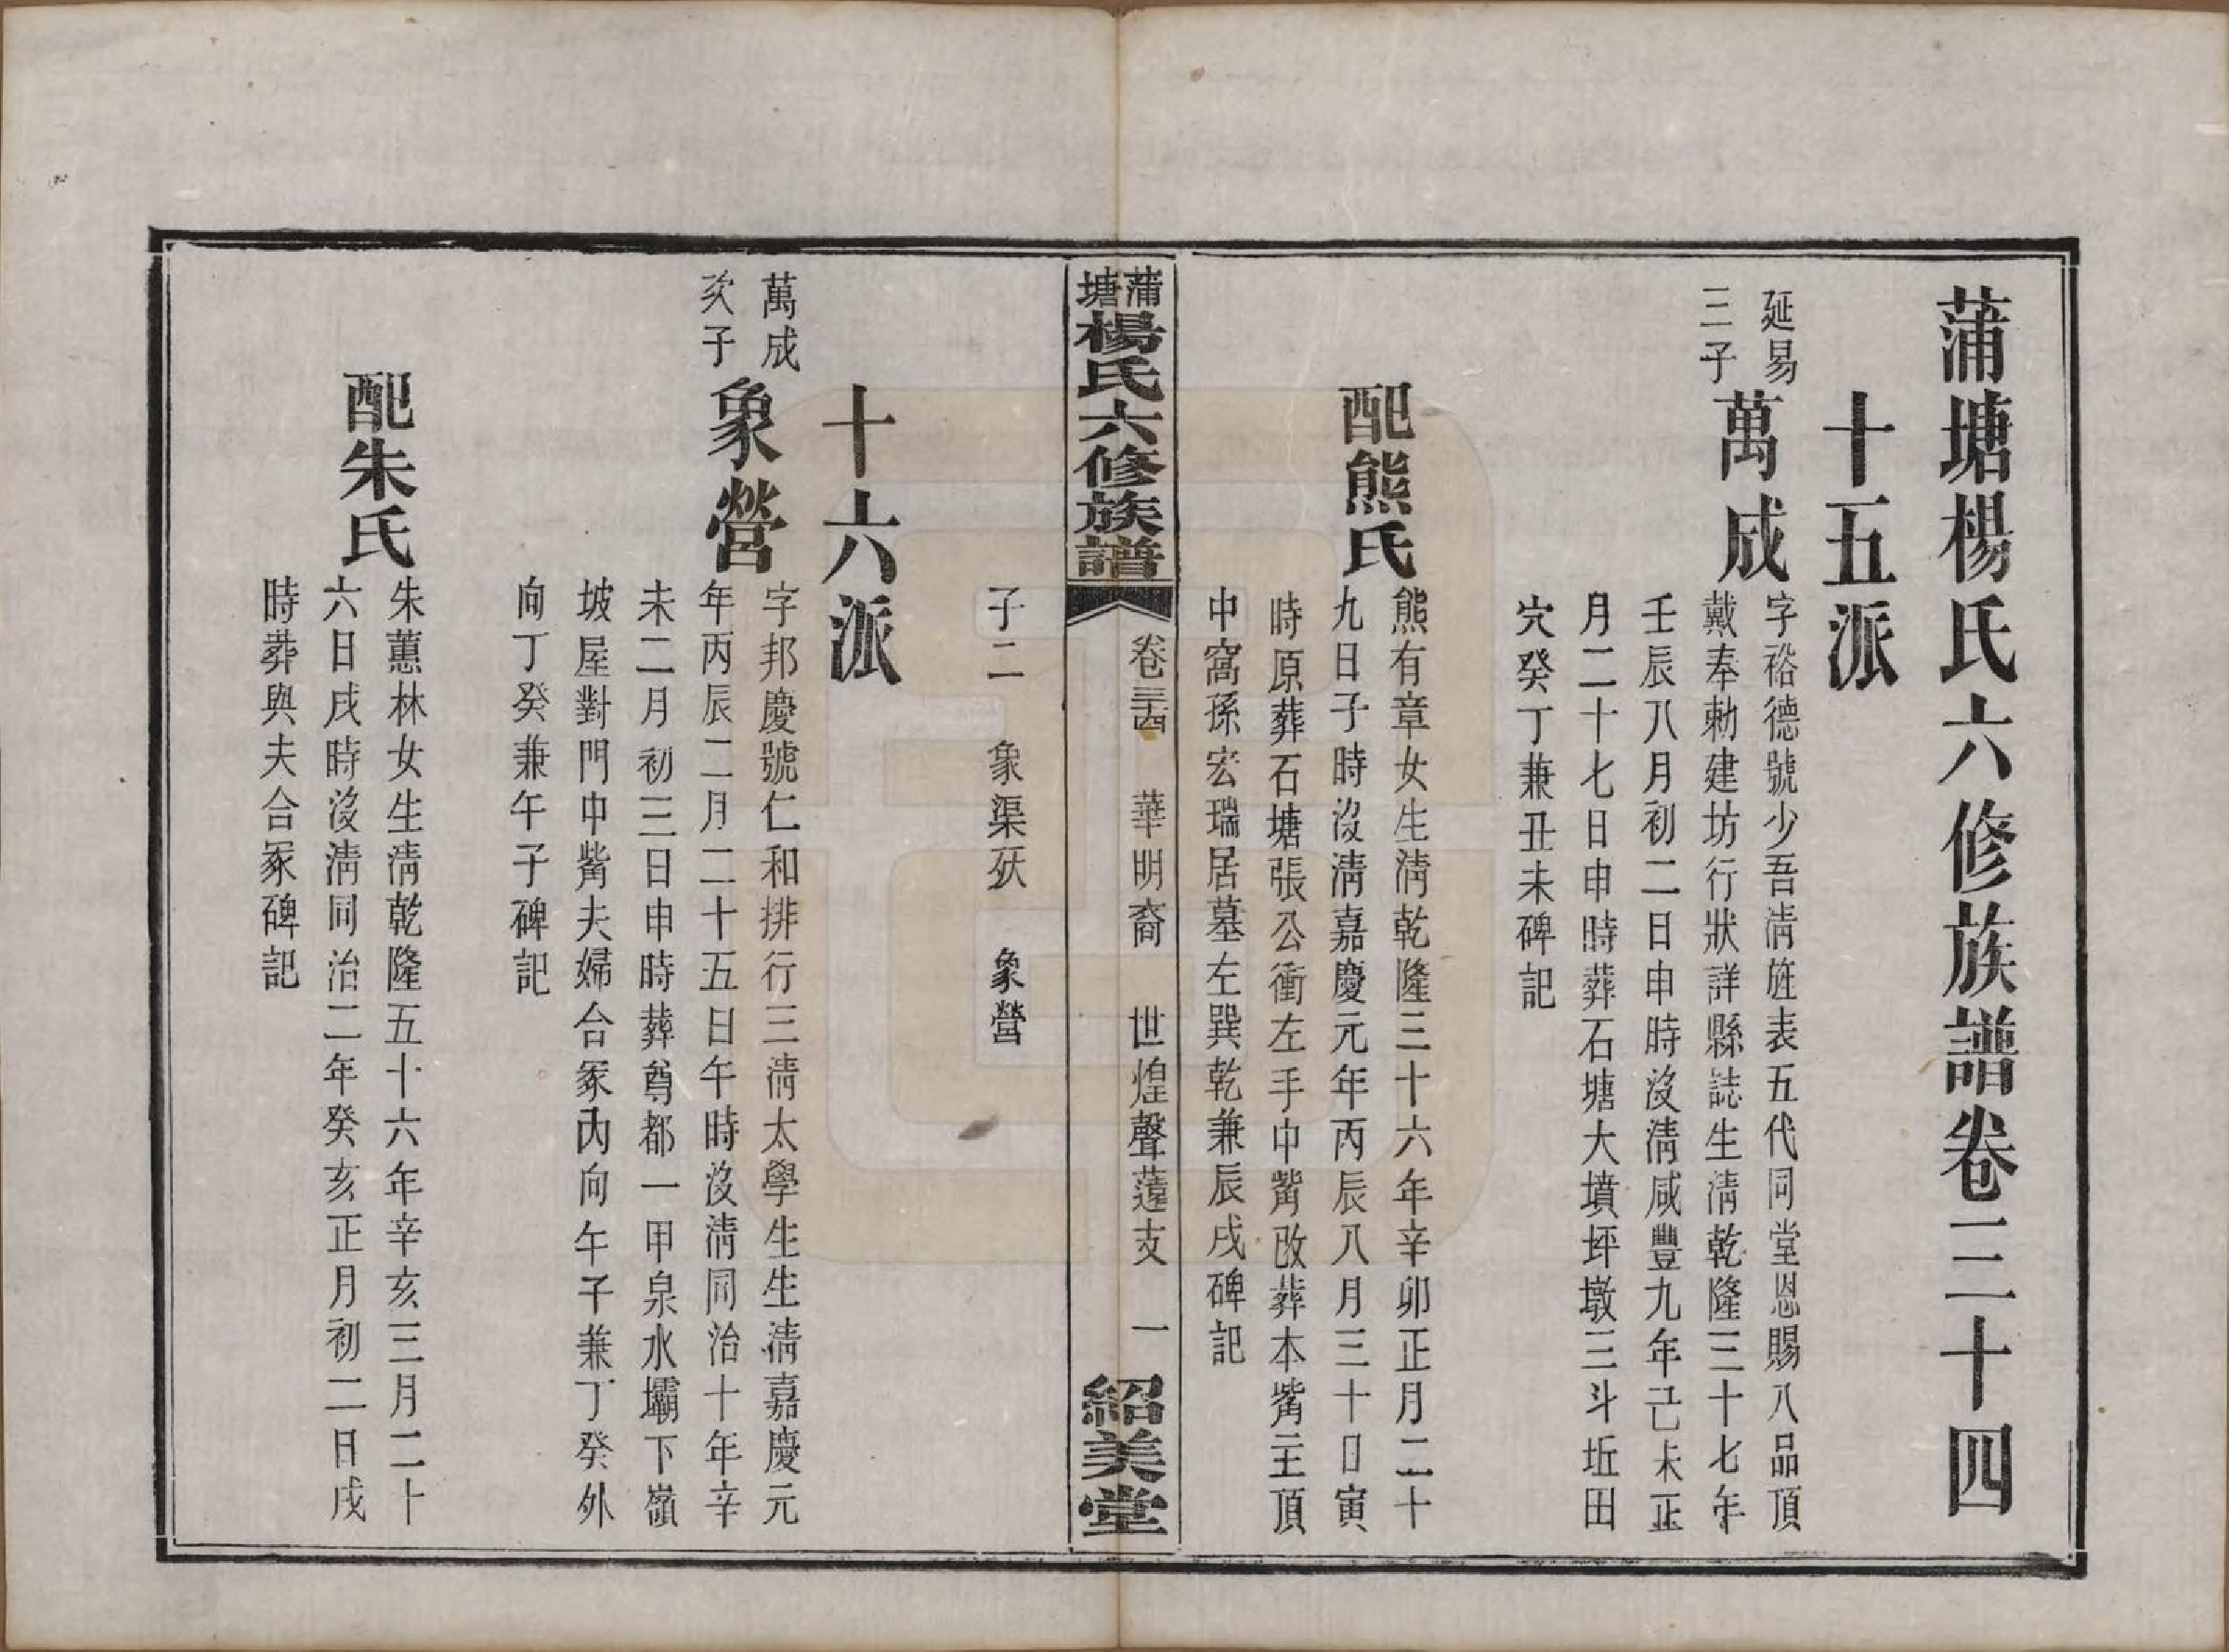 蒲塘楊氏六修族譜卷三十四
十五派
延易
三子
萬成
字裕德號少吾清旌表五代同堂恩賜八品頂
戴奉勅建坊行狀詳縣誌生清乾隆三十七年
壬辰八月初二日申時沒清咸豐九年己未正
月二十七日申時葬石塘大墳坪墩三斗坵田
穴癸丁兼丑未碑記
配熊氏
熊有章女生清乾隆三十六年辛卯正月二十
九日子時沒清嘉慶元年丙辰八月三十日寅
時原葬石塘張公衝左手中觜改葬本觜主頂
中窩孫宏瑞居墓左巽乾兼辰戌碑記
蒲塘楊氏六修族譜
卷三十四 華明裔 世煌聲蓮支 一
紹美堂
子二 象渠殀 象營
十六派
萬成
次子
象營
字邦慶號仁和排行三清太學生生清嘉慶元
年丙辰二月二十五日午時沒清同治十年辛
未二月初三日申時葬尊都一甲泉水壩下嶺
坡屋對門中觜夫婦合冢內向午子兼丁癸外
向丁癸兼午子碑記
配朱氏
朱蕙林女生清乾隆五十六年辛亥三月二十
六日戌時沒清同治二年癸亥正月初二日戌
時葬與夫合冢碑記